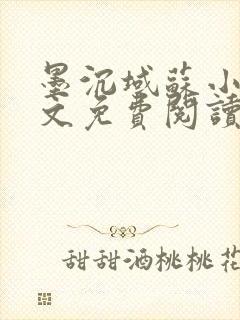 墨沉域蘇小
文免費閱讀
甜甜酒桃桃花